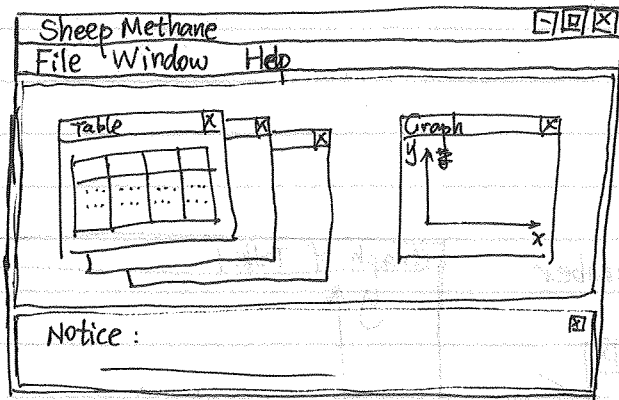 Sheep Methane
File Window Help
Table
Graph
y
x
Notice :